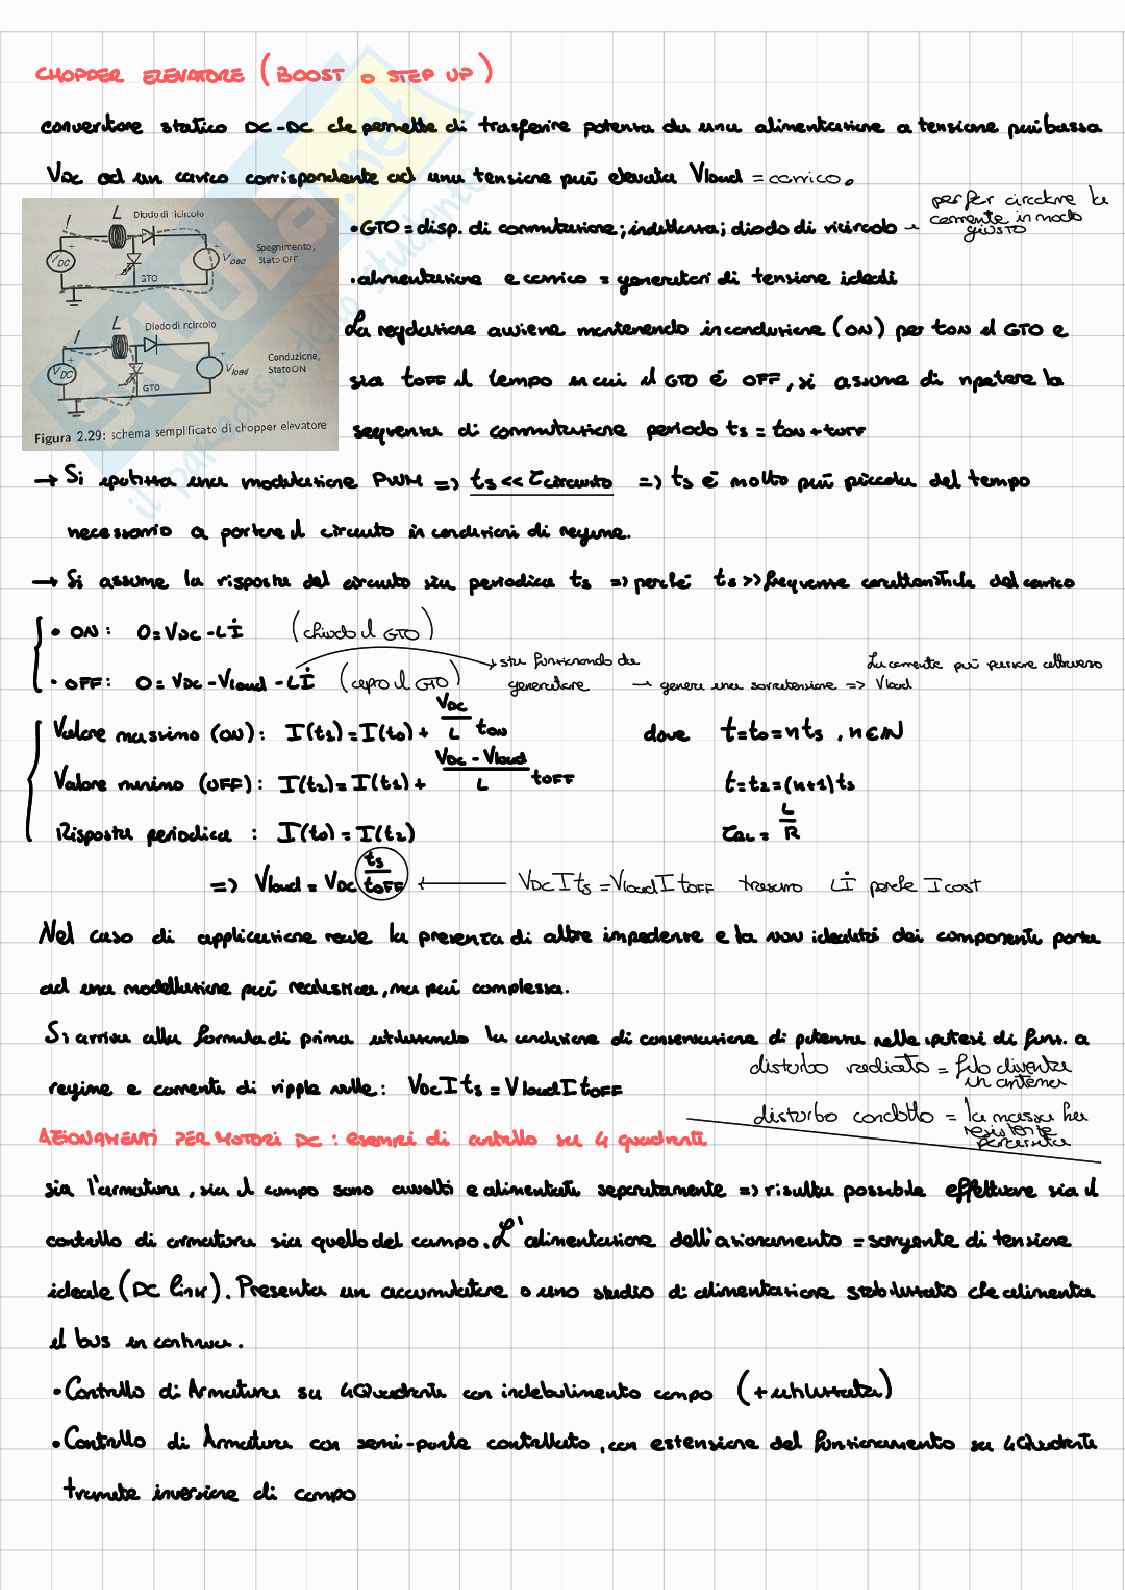 CHOPPER ELEVATORE (BOOST o STEP UP)
convertitore statico DC-DC che permette di trasferire potenza da una alimentazione a tensione più bassa
VDC ad un carico corrispondente ad una tensione più elevata Vload = carico.
I L Diodo di ricircolo
VDC GTO Vload Spegnimento, Stato OFF
I L Diodo di ricircolo
VDC GTO Vload Conduzione, Stato ON
Figura 2.29: schema semplificato di chopper elevatore
• GTO = disp. di commutazione; induttanza; diodo di ricircolo → per far circolare la corrente in modo giusto
• alimentazione e carico = generatori di tensione ideali
La regolazione avviene mantenendo in conduzione (ON) per tON il GTO e
sia tOFF il tempo in cui il GTO è OFF, si assume di ripetere la
sequenza di commutazione periodo ts = tON + tOFF
→ Si ipotizza una modulazione PWM => ts << τcircuito => ts è molto più piccola del tempo
necessario a portare il circuito in condizioni di regime.
→ Si assume la risposta del circuito sia periodica ts => perché ts >> frequenze caratteristiche del carico
• ON: 0 = VDC - Lİ (chiudo il GTO)
• OFF: 0 = VDC - Vload - Lİ (apro il GTO) → sta funzionando da generatore → genera una sovratensione => La corrente può passare attraverso Vload
Valore massimo (ON): I(t1) = I(t0) + VDC/L tON dove t = t0 = nts, n∈N
Valore minimo (OFF): I(t2) = I(t1) + (VDC - Vload)/L tOFF t = t2 = (n+1)ts
Risposta periodica: I(t0) = I(t2) τRL = L/R
=> Vload = VDC ts/tOFF ← VDC I ts = Vload I tOFF trascuro Lİ perché I cost
Nel caso di applicazione reale la presenza di altre impedenze e la non idealità dei componenti porta
ad una modellazione più realistica, ma più complessa.
Si arriva alla formula di prima utilizzando la condizione di conservazione di potenza nelle ipotesi di funz. a
regime e corrente di ripple nulle: VDC I ts = Vload I tOFF
disturbo radiato = filo diventa un antenna
disturbo condotto = la massa ha resistenze parassita
AZIONAMENTI PER MOTORI DC: esempi di controllo su 4 quadranti
sia l'armatura, sia il campo sono avvolti e alimentati separatamente => risulta possibile effettuare sia il
controllo di armatura sia quello del campo. L'alimentazione dell'azionamento = sorgente di tensione
ideale (DC link). Presenta un accumulatore o uno stadio di alimentazione stabilizzato che alimenta
il bus in continua.
• Controllo di Armatura su 4Quadrante con indebolimento campo (+ utilizzata)
• Controllo di Armatura con semi-ponte controllato, con estensione del funzionamento su 4Quadrante
tramite inversione di campo